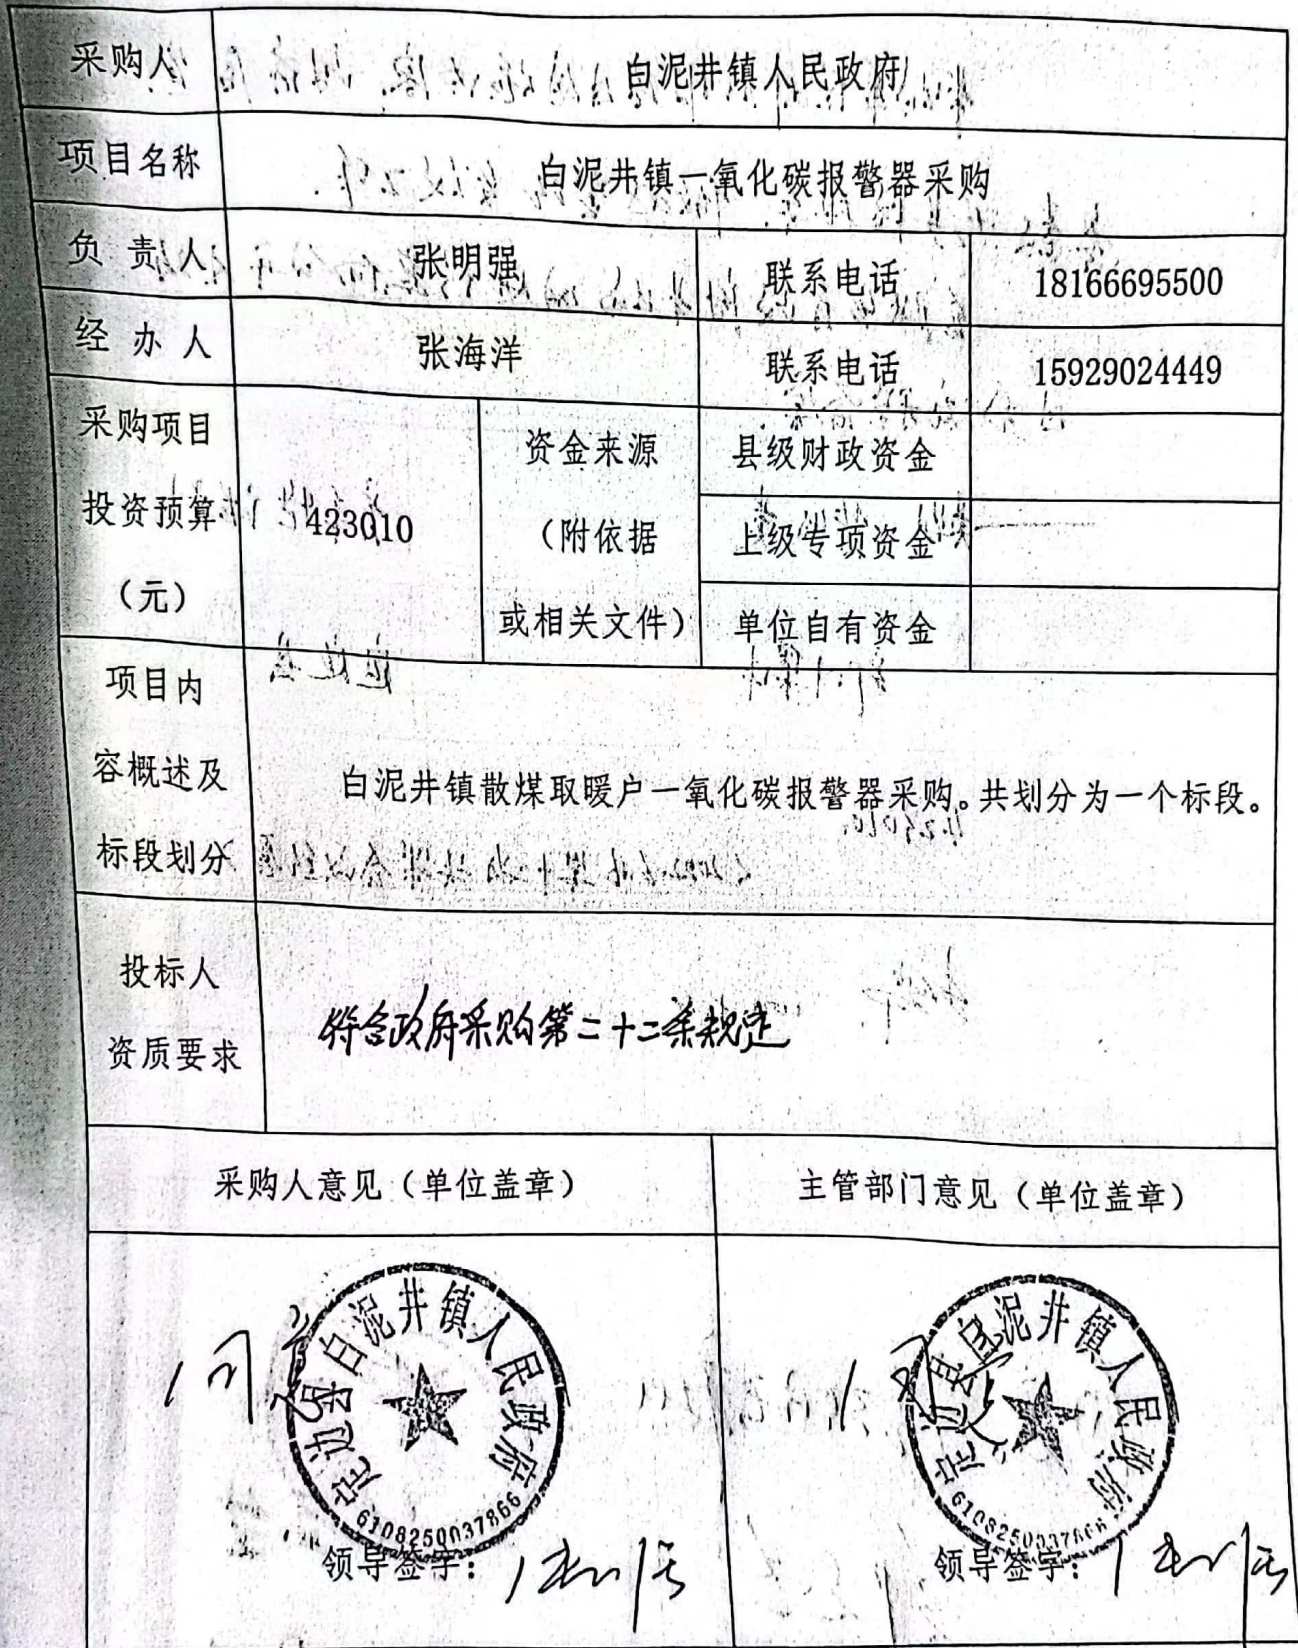 采购人 白泥井镇人民政府
项目名称 白泥井镇一氧化碳报警器采购
负责人 张明强 联系电话 18166695500
经办人 张海洋 联系电话 15929024449
采购项目
投资预算
（元）
423010
资金来源
（附依据
或相关文件）
县级财政资金
上级专项资金
单位自有资金
项目内
容概述及
标段划分
白泥井镇散煤取暖户一氧化碳报警器采购。共划分为一个标段。
投标人
资质要求
符合政府采购第二十二条规定
采购人意见（单位盖章） 主管部门意见（单位盖章）
同意
定边县白泥井镇人民政府
6108250037866
领导签字：
定边县白泥井镇人民政府
6108250037866
领导签字：